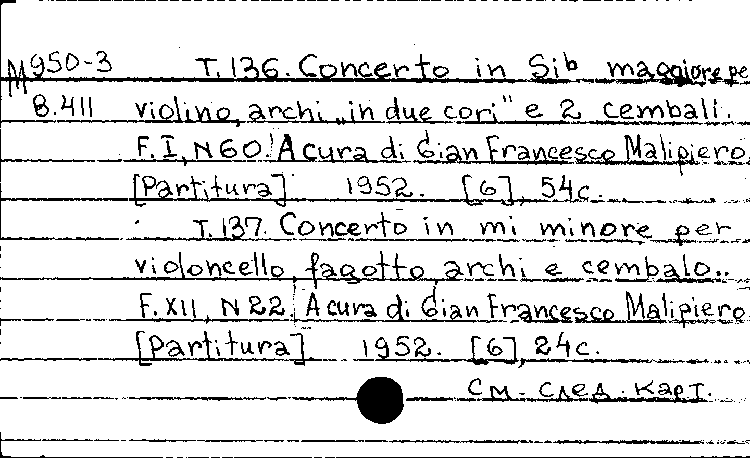 М950-3 T.136. Concerto in Si♭ maggiore pe
8.411 violino, archi „in due cori" e 2 cembali.
F. I, N 60. A cura di Gian Francesco Malipiero.
[Partitura] 1952. [6], 54с.
T.137. Concerto in mi minore per
violoncello, fagotto, archi e cembalo..
F. XII, N 22. A cura di Gian Francesco Malipiero
[Partitura] 1952. [6], 24с.
См. след. карт.